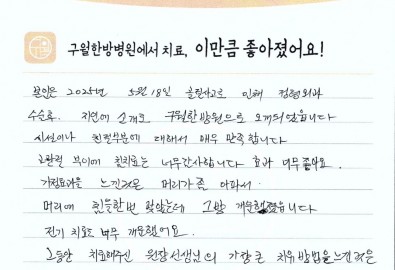 구월한방병원에서 치료, 이만큼 좋아졌어요!
본인은 2025년 5월 18일 출퇴사고로 인해 정형외과
수술후. 지인에 소개로 구월한방병원으로 오게되었습니다
시설이나 친절부분에 대해서 매우 만족합니다
침치료는 너무 감사합니다 효과 너무좋아요.
느낀것은 머리가 좀 아파서.
머리에 침을한번 맞았는데 그방 개운해졌습니다
전기 치료도 너무 개운했어요.
그동안 치료해주신 원장선생님의 가장큰 치유 방법을 느낀것은